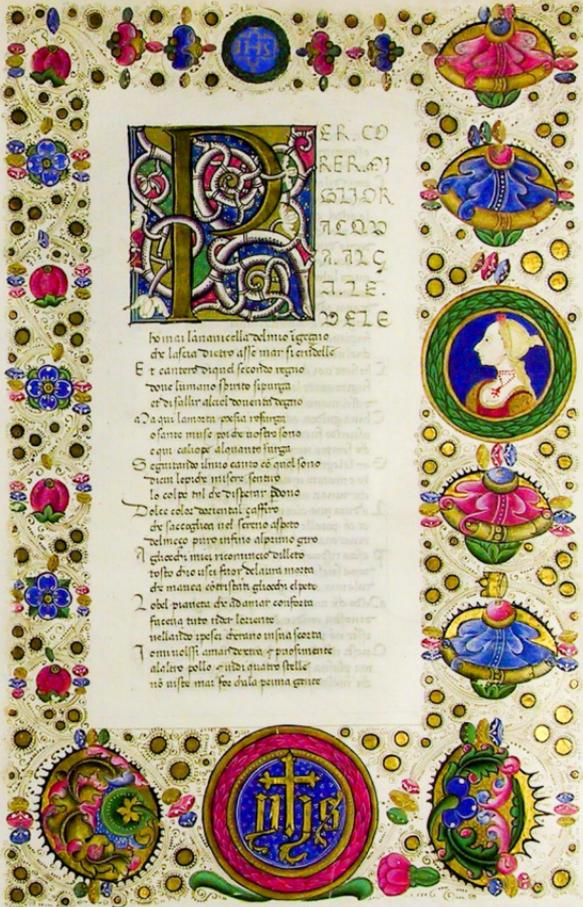 IHS
P
ER. CO
RER. MI
GLIOR
ACQV
A. ALÇ
A. LE.
VELE
homai la navicella del mio īgegno
che lascia dietro asse mar si crudelle
E t cantero di quel secondo regno
dove lumano spirito si purga
et di sallir alciel doventa degno
M a qui lamorta poesia resurga
o sante muse poi che vostro sono
e qui caliope alquanto surga
S eguitando ilmio canto cō quel sono
di cui lepiche misere sentiro
lo colpo tal che disperar pdono
D olce color doriental çaffiro
che saccoglieva nel sereno aspeto
del meço puro infino alprimo giro
A gliocchi miei dilleto
tosto chio usci fuor delaura morta
che mauea cōtristati gliocchi el peto
L obel pianeta che ad amar conforta
faceua tuto rider loriente
vellando i pesci cherano in sua scorta
I o mi volssi amandextra & puosi mente
alaltro pollo & uidi quatro stelle
nō uiste mai for chala prima gente
yhs